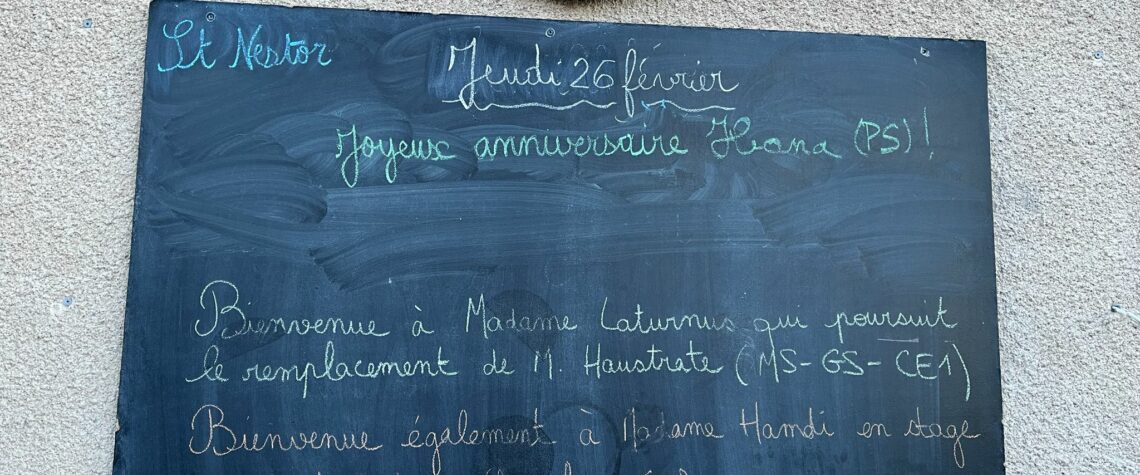 St Nestor
Jeudi 26 février
Joyeux anniversaire Hana (PS)!
Bienvenue à Madame Laturnus qui poursuit
le remplacement de M. Haustrate (MS-GS-CE1)
Bienvenue également à Madame Hamdi en stage